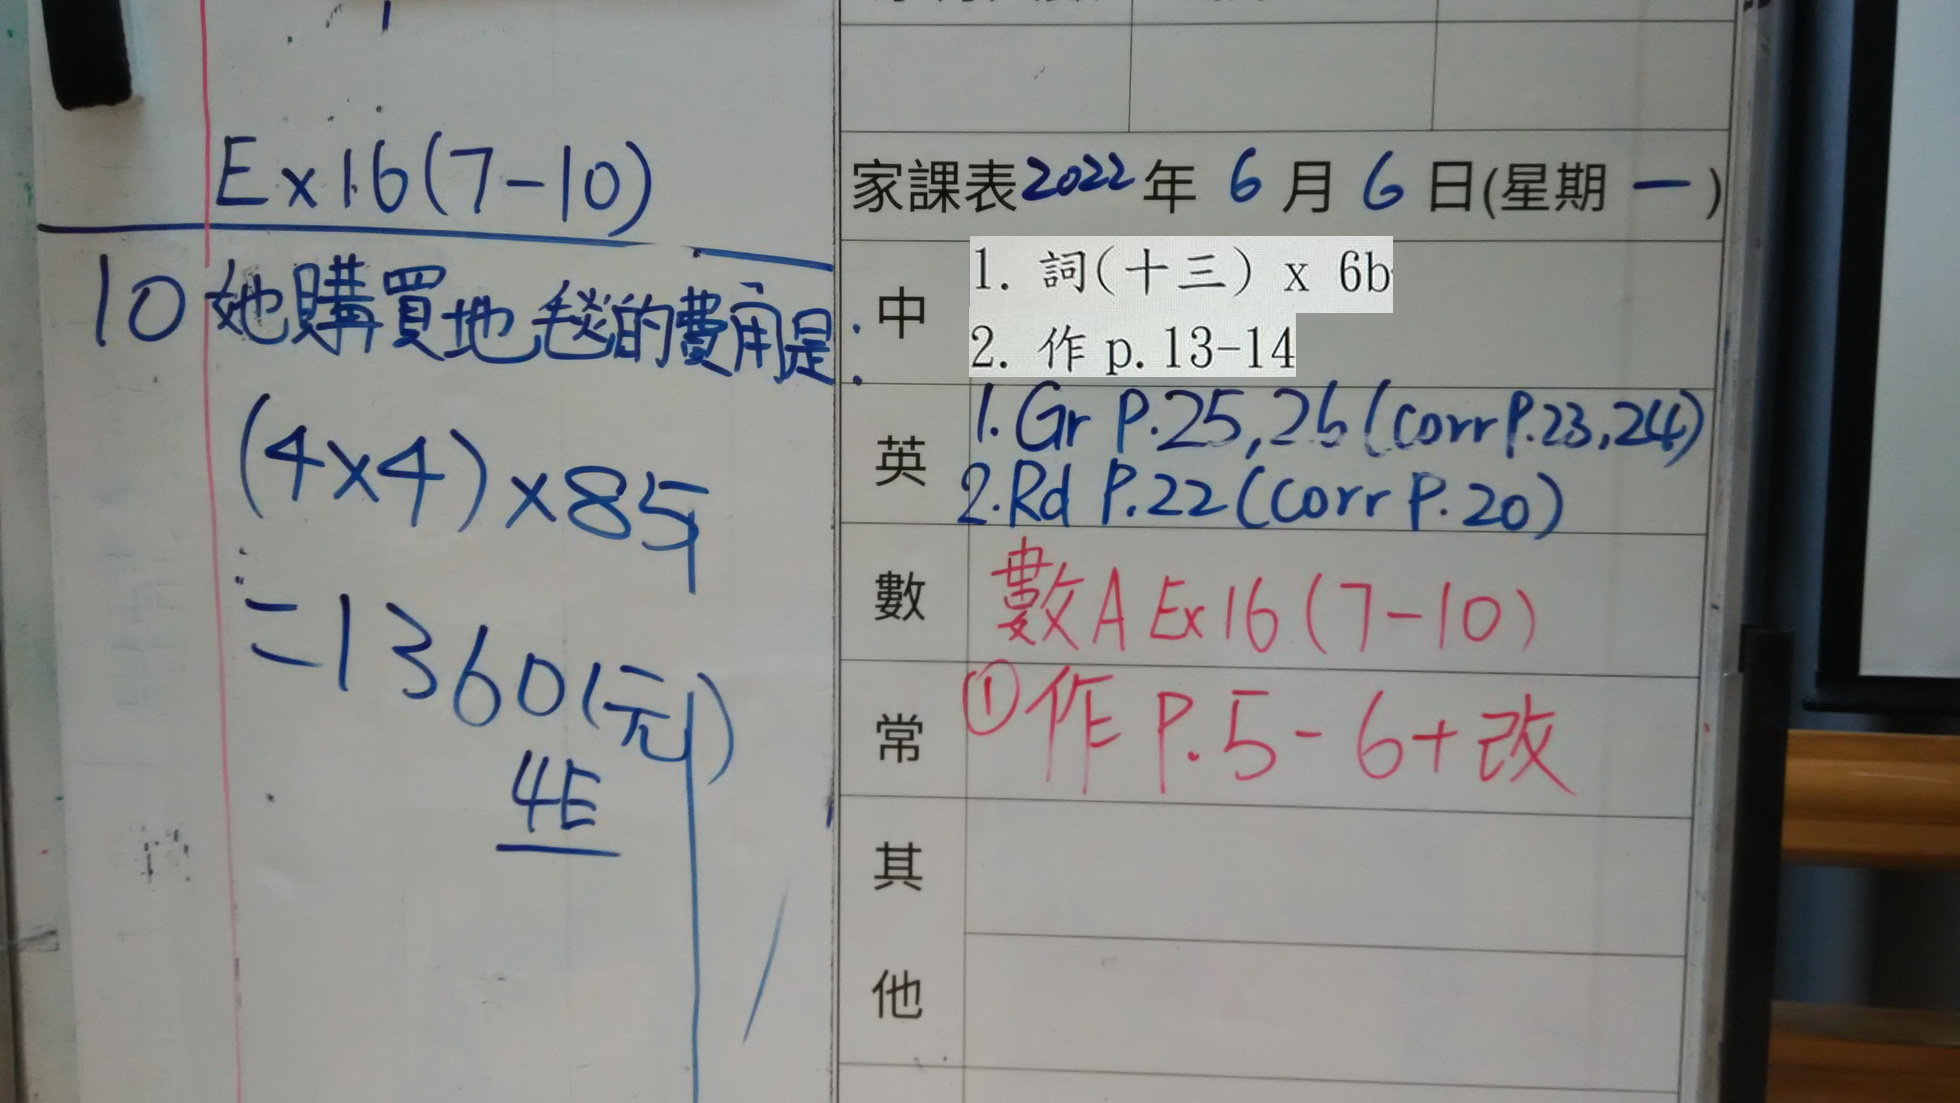 Ex16(7-10)
10 她購買地毯的費用是:
(4×4)×85
=1360(元)
4E
家課表2022年6月6日(星期一)
中
1. 詞(十三) x 6b
2. 作 p.13-14
英
1.Gr P.25,26(corr P.23,24)
2.Rd P.22(corr P.20)
數
數A Ex16(7-10)
常
①作 P.5-6+改
其
他